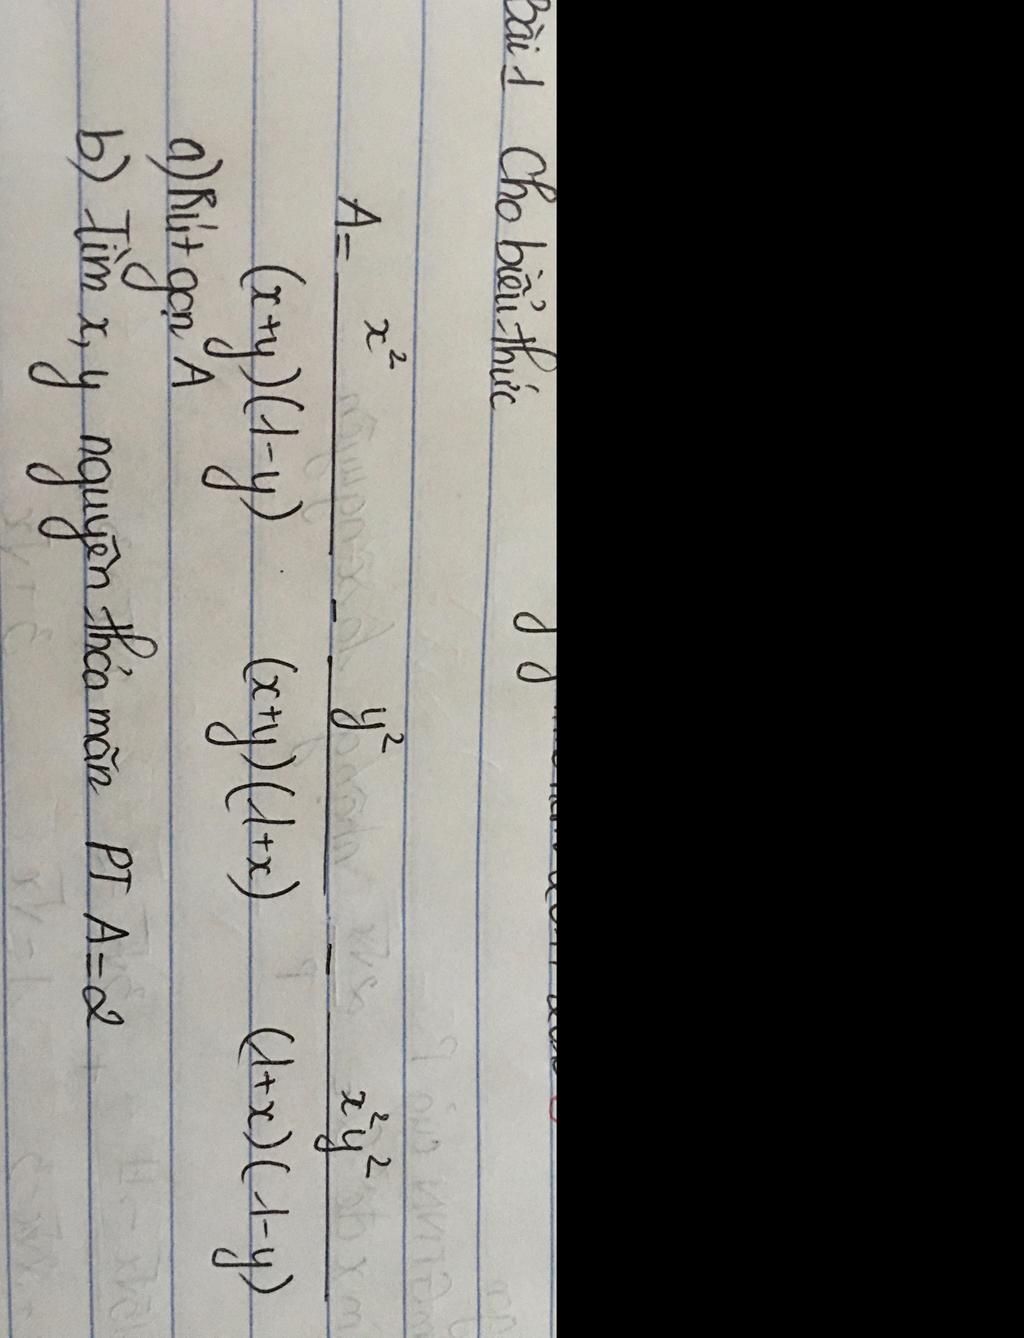 Bài 1 Cho biểu thức
A = x²/((x+y)(1-y)) - y²/((x+y)(1+x)) - x²y²/((1+x)(1-y))
a) Rút gọn A
b) Tìm x, y nguyên thỏa mãn PT A=2